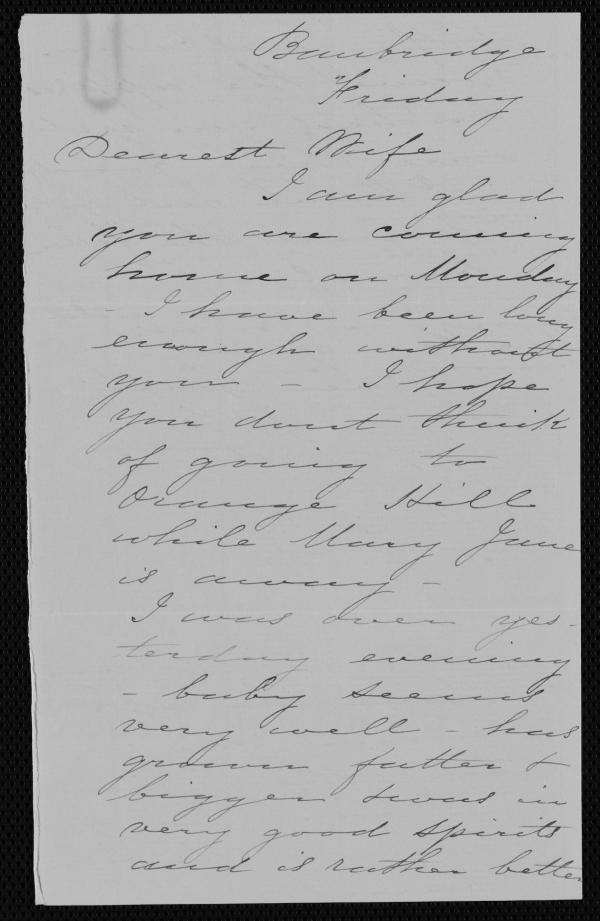 Banbridge
Friday
Dearest Wife
I am glad
you are coming
home on Monday
- I have been long
enough without
you - I hope
you dont think
of going to
Orange Hill
while Mary Jane
is away -
I was over yes-
terday evening
- baby seems
very well - has
grown fatter &
bigger & was in
very good spirits
and is rather better